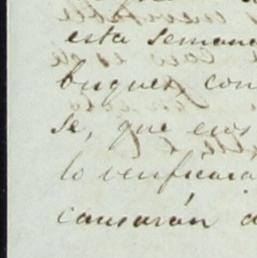 esta semana
buques con
se, que esos
lo verificara
causarán a